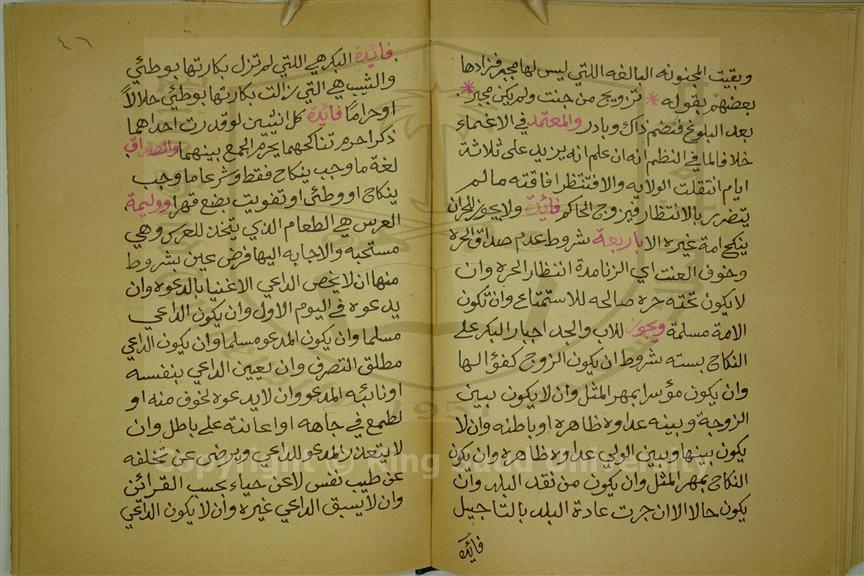 وبقيت المجنونه البالغه اللتي ليس لها مجبر فزادها
بعضهم بقوله * تزويج من جنت ولم يكن مجبر *
بعد البلوغ فتضم ذاك وبادر والمعتمد في الاغماء
خلافا لما في النظم انه ان علم انه يزيد على ثلاثة
ايام انتقلت الولايه والا فتنتظر افاقته مالم
يتضرر بالانتظار فيزوج الحاكم فائدة ولا يجوز للحران
ينكح امة غيره الا باربعة شروط عدم صداق الحرة
وخوف العنت اي الزنا مدة انتظار الحره وان
لا يكون تحته حره صالحه للاستمتاع وان تكون
الامة مسلمة ويجوز للاب والجد اجبار البكر على
النكاح بسته شروط ان يكون الزوج كفؤا لها
وان يكون مؤسرا بمهر المثل وان لا يكون بين
الزوجة وبينه عداوه ظاهره او باطنه وان لا
يكون بينها وبين الولي عداوه ظاهرة وان يكون
النكاح بمهر المثل وان يكون من نقد البلد وان
يكون حالا الا ان جرت عادة البلد بالتاجيل
فائدة
٤٦
فائدة البكر هي اللتي لم تزل بكارتها بوطئي
والثيب هي التي زالت بكارتها بوطئي حلالاً
او حراما فائدة كل انثيين لو قدرت احداهما
ذكرا حرم تناكحهما يحرم الجمع بينهما والصداق
لغة ما وجب بنكاح فقط وشرعا ما وجب
بنكاح او وطئي او تفويت بضع قهرا ووليمة
العرس هي الطعام الذي يتخذ للعرس وهي
مستحبه والاجابه اليها فرض عين بشروط
منها ان لا يخص الداعي الاغنيا بالدعوه وان
يدعوه في اليوم الاول وان يكون الداعي
مسلما وان يكون المدعو مسلما وان يكون الداعي
مطلق التصرف وان يعين الداعي بنفسه
او نائبه المدعو وان لا يدعوه لخوف منه او
لطمع في جاهه او اعانته على باطل وان
لا يتعذر المدعو للداعي ويرضى عن تخلفه
عن طيب نفس لا عن حياء بحسب القرائن
وان لا يسبق الداعي غيره وان لا يكون الداعي
Copyright © King Saud University
1957